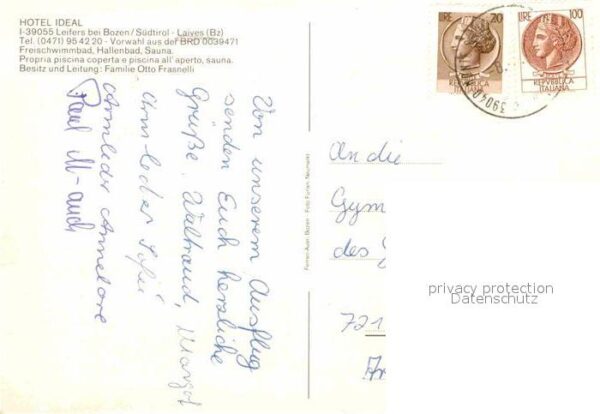 HOTEL IDEAL
I-39055 Leifers bei Bozen/Südtirol - Laives (Bz)
Tel. (0471) 95 42 20 - Vorwahl aus der BRD 0039471
Freischwimmbad, Hallenbad, Sauna.
Propria piscina coperta e piscina all'aperto, sauna.
Besitz und Leitung: Familie Otto Frasnelli
LIRE 20
REPVBBLICA
ITALIANA
LIRE 100
REPVBBLICA
ITALIANA
39040
Von unserem Ausflug
senden Euch herzliche
Grüße Waltraud, Margot
Armleder Sofie
Armleder Annelore
Paul
An die
Gym
des
721
privacy protection
Datenschutz